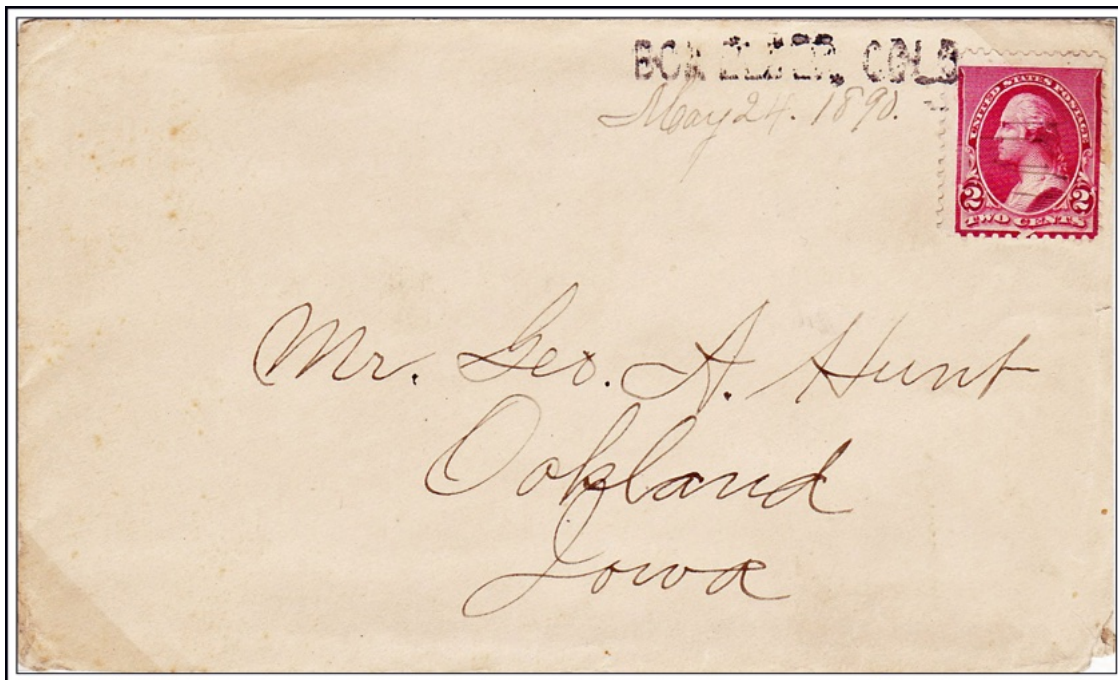 BOX ELDER, COLO
May 24. 1890.
UNITED STATES POSTAGE
2 2
TWO CENTS
Mr. Geo. A. Hunt
Oakland
Iowa